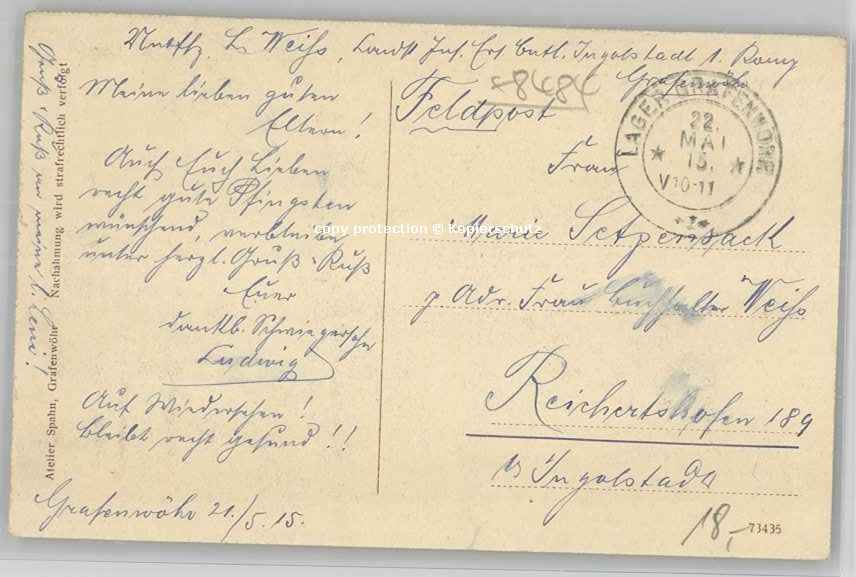 L. Weiß, Landst. Inf. Ers. Batl. Ingolstadt 1. Komp
Grafenwöhr
Meine lieben guten
Eltern!
Auch Euch Lieben
recht gute Pfingsten
wünschend, verbleibe
unter herzl. Gruß + Kuß
Euer
dankb. Schwiegersohn
Ludwig
Auf Wiedersehen!
bleibt recht gesund!!
Grafenwöhr 21./5.15.
Gruß + Kuß an meine l. Leni!
Atelier Spahn, Grafenwöhr Nachahmung wird strafrechtlich verfolgt
8484
Feldpost
LAGER GRAFENWÖHR
22.
MAI
15.
V10-11
Frau
Marie Setzensack
p Adr. Frau Buchhalter Weiß
Reichertshofen 189
b/ Ingolstadt
18,-
73435
copy protection © Kopierschutz